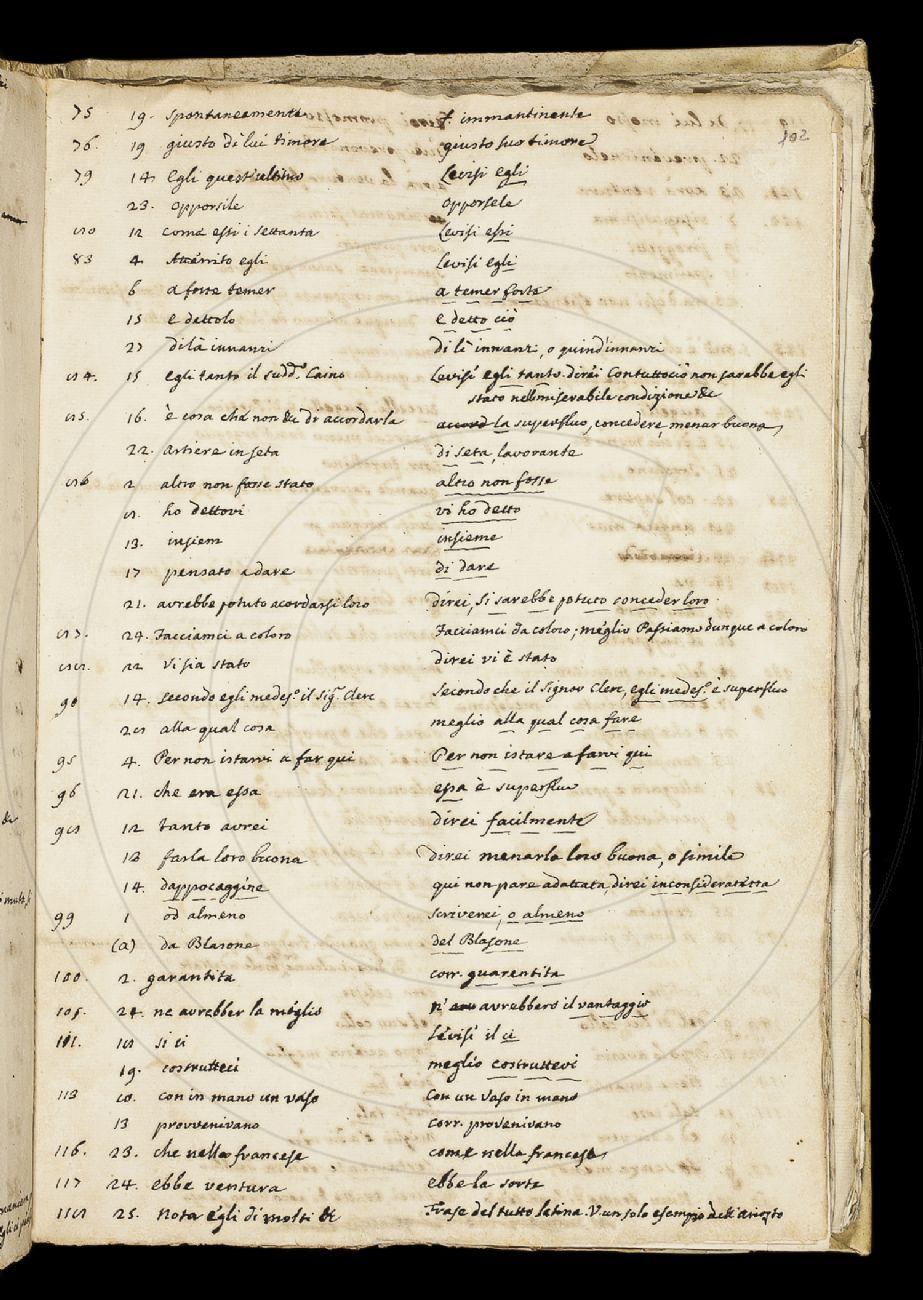 102
75 19. spontaneamente f. immantinente
76. 19 giusto di lui timore giusto suo timore
79 14 Egli quest'ultimo Levisi egli
23. opporsile opporsele
80 12 come essi i settanta Levisi essi
83 4 Atterrito egli Levisi egli
6 a forte temer a temer forte
15 e dettolo e detto ciò
27 di là innanzi di lì innanzi, o quind'innanzi
84. 15 egli tanto il sudd.º Caino Levisi egli tanto. direi Contuttociò non sarebbe egli
stato nella miserabile condizione &c
85. 16. è cosa che non &c di accordarla accord la superfluo, concedere, menar buona,
22. artiere in seta di seta, lavorante
86 2 altro non fosse stato altro non fosse
8. ho dettovi vi ho detto
13. insiem insieme
17 pensato a dare di dare
21. avrebbe potuto acordarsi loro direi, si sarebbe potuto conceder loro
87. 24. Facciamci a coloro Facciamci da coloro; meglio Passiamo dunque a coloro
88. 12 vi sia stato direi vi è stato
90 14. secondo egli medes.º il sig.r Clerc secondo che il Signor Clerc, egli medes.º è superfluo
28 alla qual cosa meglio alla qual cosa fare
95 4. Per non istarvi a far qui Per non istare a farvi qui
96 21. che era essa essa è superfluo
98 12 tanto avrei direi facilmente
13 farla loro buona direi menarla loro buona, o simile
14. dappocaggine qui non pare adattata, direi inconsideratezza
99 1 od almeno scriverei, o almeno
(a) da Blasone del Blasone
100. 2. garantita corr. guarentita
105. 24. ne avrebber la meglio n' avrebbero il vantaggio
111. 18 si ci Levisi il ci
19. costrutteci meglio costruttevi
113 10. con in mano un vaso con un vaso in mano
13 provvenivano corr. provenivano
116. 23. che nella francese come nella francese
117 24. ebbe ventura ebbe la sorte
118 25. nota egli di molti &c Frase del tutto latina. V. un solo esempio dell'Ariosto